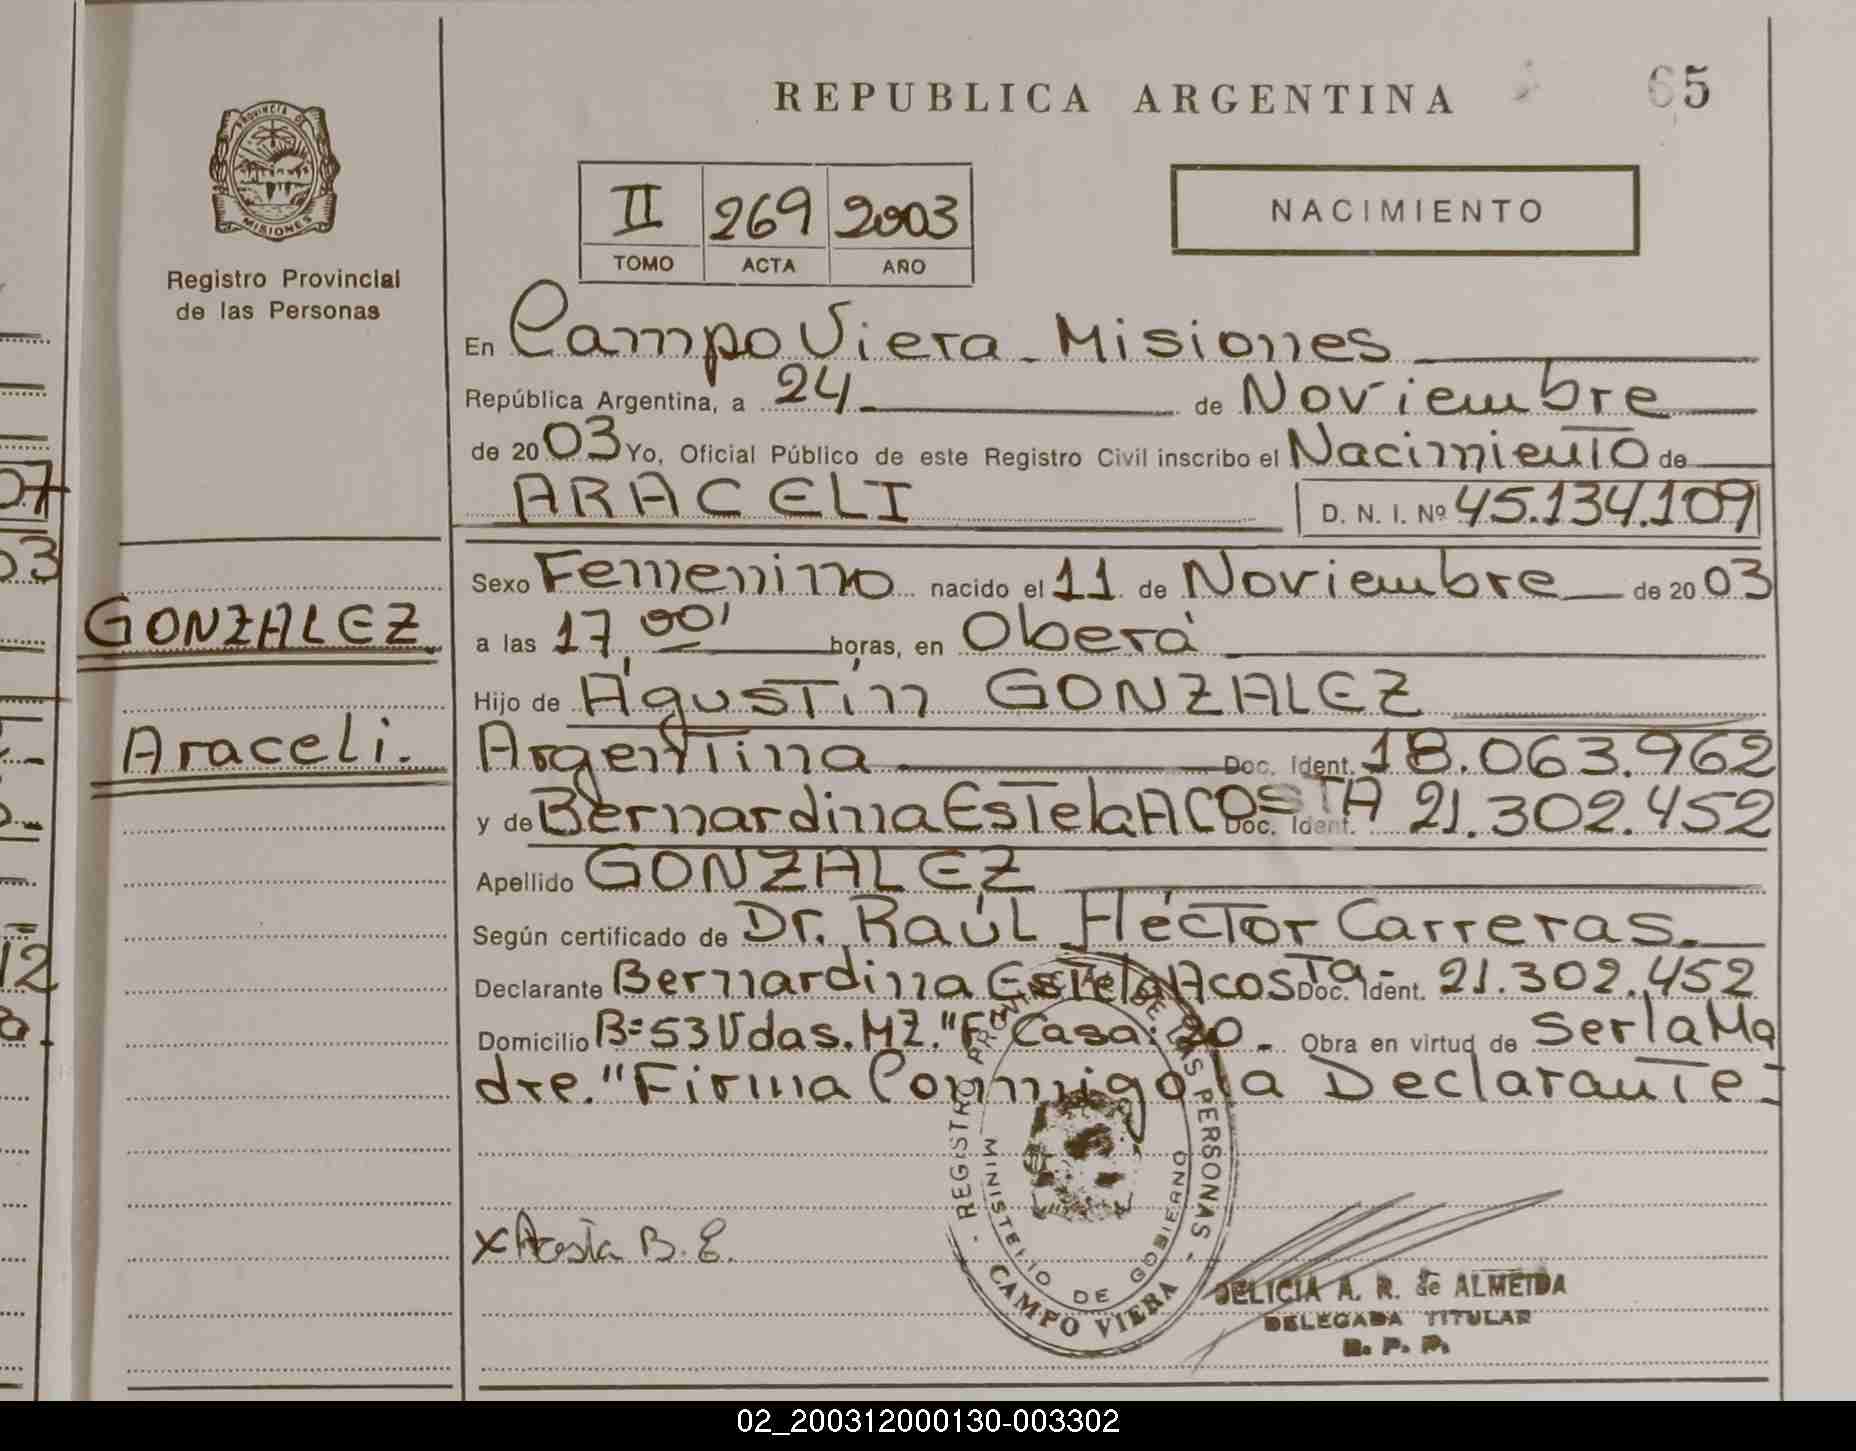 REPUBLICA ARGENTINA
65
PROVINCIA DE
MISIONES
Registro Provincial
de las Personas
II 269 2003
TOMO ACTA AÑO
NACIMIENTO
En Campo Viera - Misiones
República Argentina, a 24 de Noviembre
de 2003 Yo, Oficial Público de este Registro Civil inscribo el Nacimiento de
ARACELI D. N. I. Nº 45.134.109
Sexo Femenino nacido el 11 de Noviembre de 2003
GONZALEZ
a las 17,00' horas, en Oberá
Hijo de Agustín GONZALEZ
Araceli.
Argentina Doc. Ident. 18.063.962
y de Bernardina Estela ACOSTA Doc. Ident. 21.302.452
Apellido GONZALEZ
Según certificado de Dr. Raúl Héctor Carreras.
Declarante Bernardina Estela Acosta- Doc. Ident. 21.302.452
Domicilio B=53 Vdas. MZ. "F" Casa: 20 - Obra en virtud de Ser la Ma
dre. "Firma Conmigo la Declarante-
x Acosta B. E.
- REGISTRO PROVINCIAL DE LAS PERSONAS -
MINISTERIO DE GOBIERNO
CAMPO VIERA
DELICIA A. R. de ALMEIDA
DELEGADA TITULAR
R. P. P.
07
03
12
02_200312000130-003302